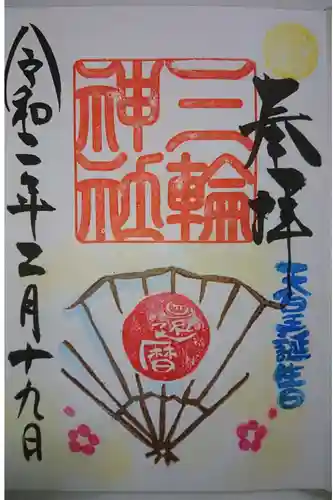 奉拝
天皇誕生日
三輪
神社
暦
令和二年二月十九日